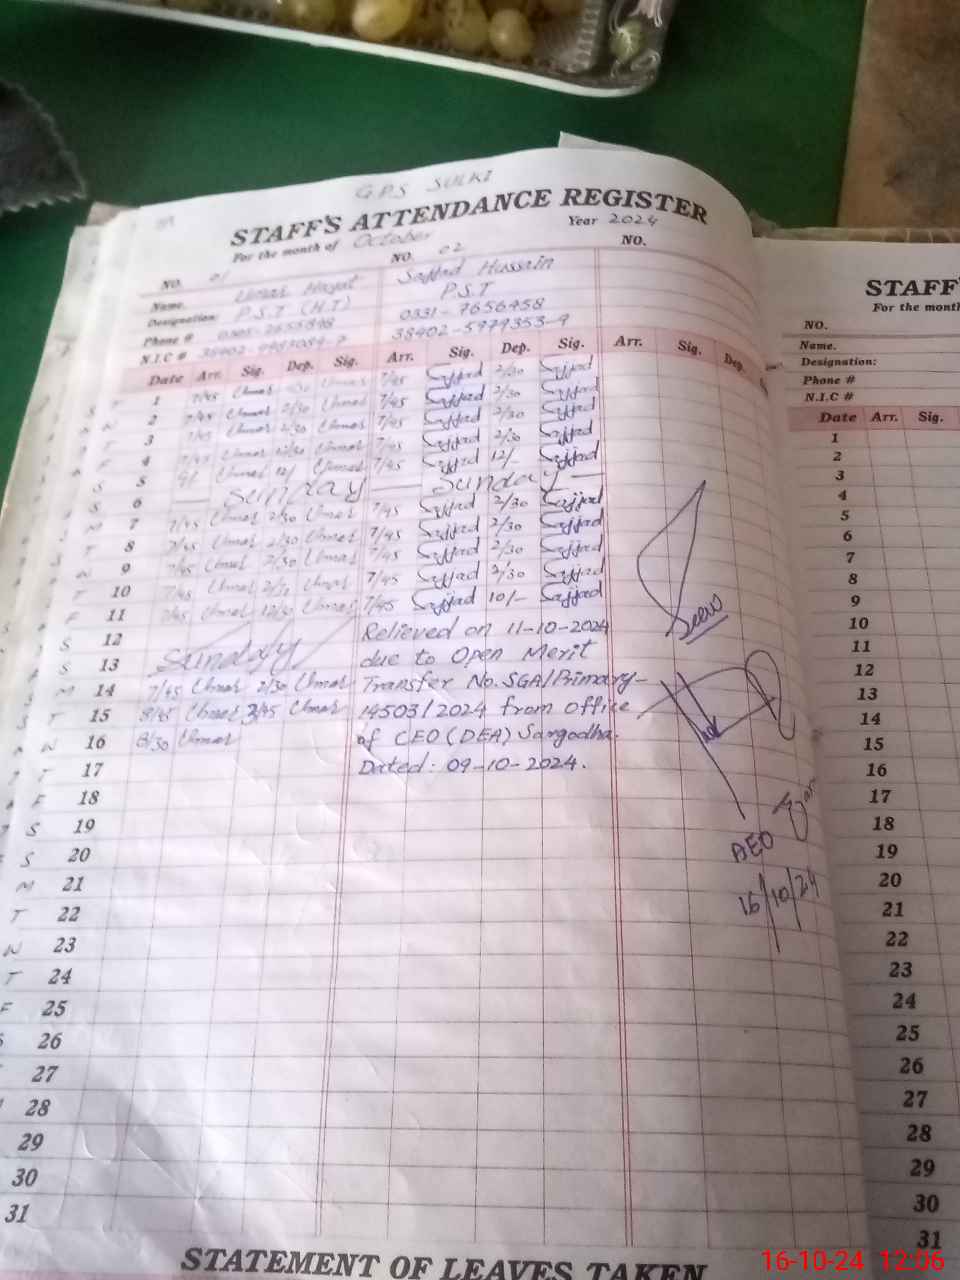 G.P.S SULKI
STAFF'S ATTENDANCE REGISTER
For the month of October Year 2024
NO. 01 NO 02 NO.
Name. Umar Hayat Sajjad Hussain
Designation: P.S.T (H.T) P.S.T
Phone # 0331-7656458
N.I.C # 38402-5979353-9
Date Arr. Sig. Dep. Sig. Arr. Sig. Dep. Sig. Arr. Sig. Dep.
1 7/45 Umar 2/30 Umar 7/45 Sajjad 2/30 Sajjad
2 7/45 Umar 2/30 Umar 7/45 Sajjad 2/30 Sajjad
3 7/45 Umar 2/30 Umar 7/45 Sajjad 2/30 Sajjad
4 7/45 Umar 12/ Umar 7/45 Sajjad 12/- Sajjad
S 5
S 6 Sunday Sunday
M 7 7/45 Umar 2/30 Umar 7/45 Sajjad 2/30 Sajjad
T 8 7/45 Umar 2/30 Umar 7/45 Sajjad 2/30 Sajjad
W 9 7/45 Umar 2/30 Umar 7/45 Sajjad 2/30 Sajjad
T 10 7/45 Umar 2/30 Umar 7/45 Sajjad 2/30 Sajjad
F 11 7/45 Umar 12/30 Umar 7/45 Sajjad 10/- Sajjad
S 12 Relieved on 11-10-2024
S 13 Sunday due to Open Merit
M 14 7/45 Umar 2/30 Umar Transfer No. SGA/Primary-
T 15 8/45 Umar 2/45 Umar 14503/2024 from office
W 16 8/30 Umar of CEO (DEA) Sargodha.
T 17 Dated: 09-10-2024.
F 18
S 19
S 20
M 21
T 22
W 23
T 24
F 25
26
27
28
29
30
31
AEO
16/10/24
STATEMENT OF LEAVES TAKEN
STAFF'
For the month
NO.
Name.
Designation:
Phone #
N.I.C #
Date Arr. Sig.
1
2
3
4
5
6
7
8
9
10
11
12
13
14
15
16
17
18
19
20
21
22
23
24
25
26
27
28
29
30
31
16-10-24 12:06